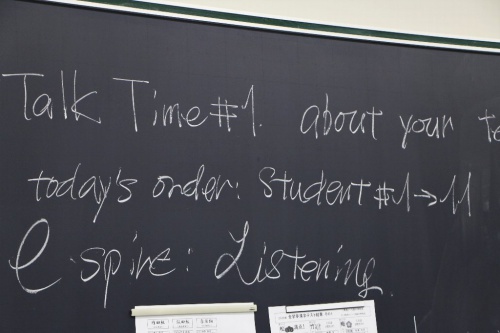 Talk Time #1. about your te
today's order: Student #1→11
e-spire: Listening